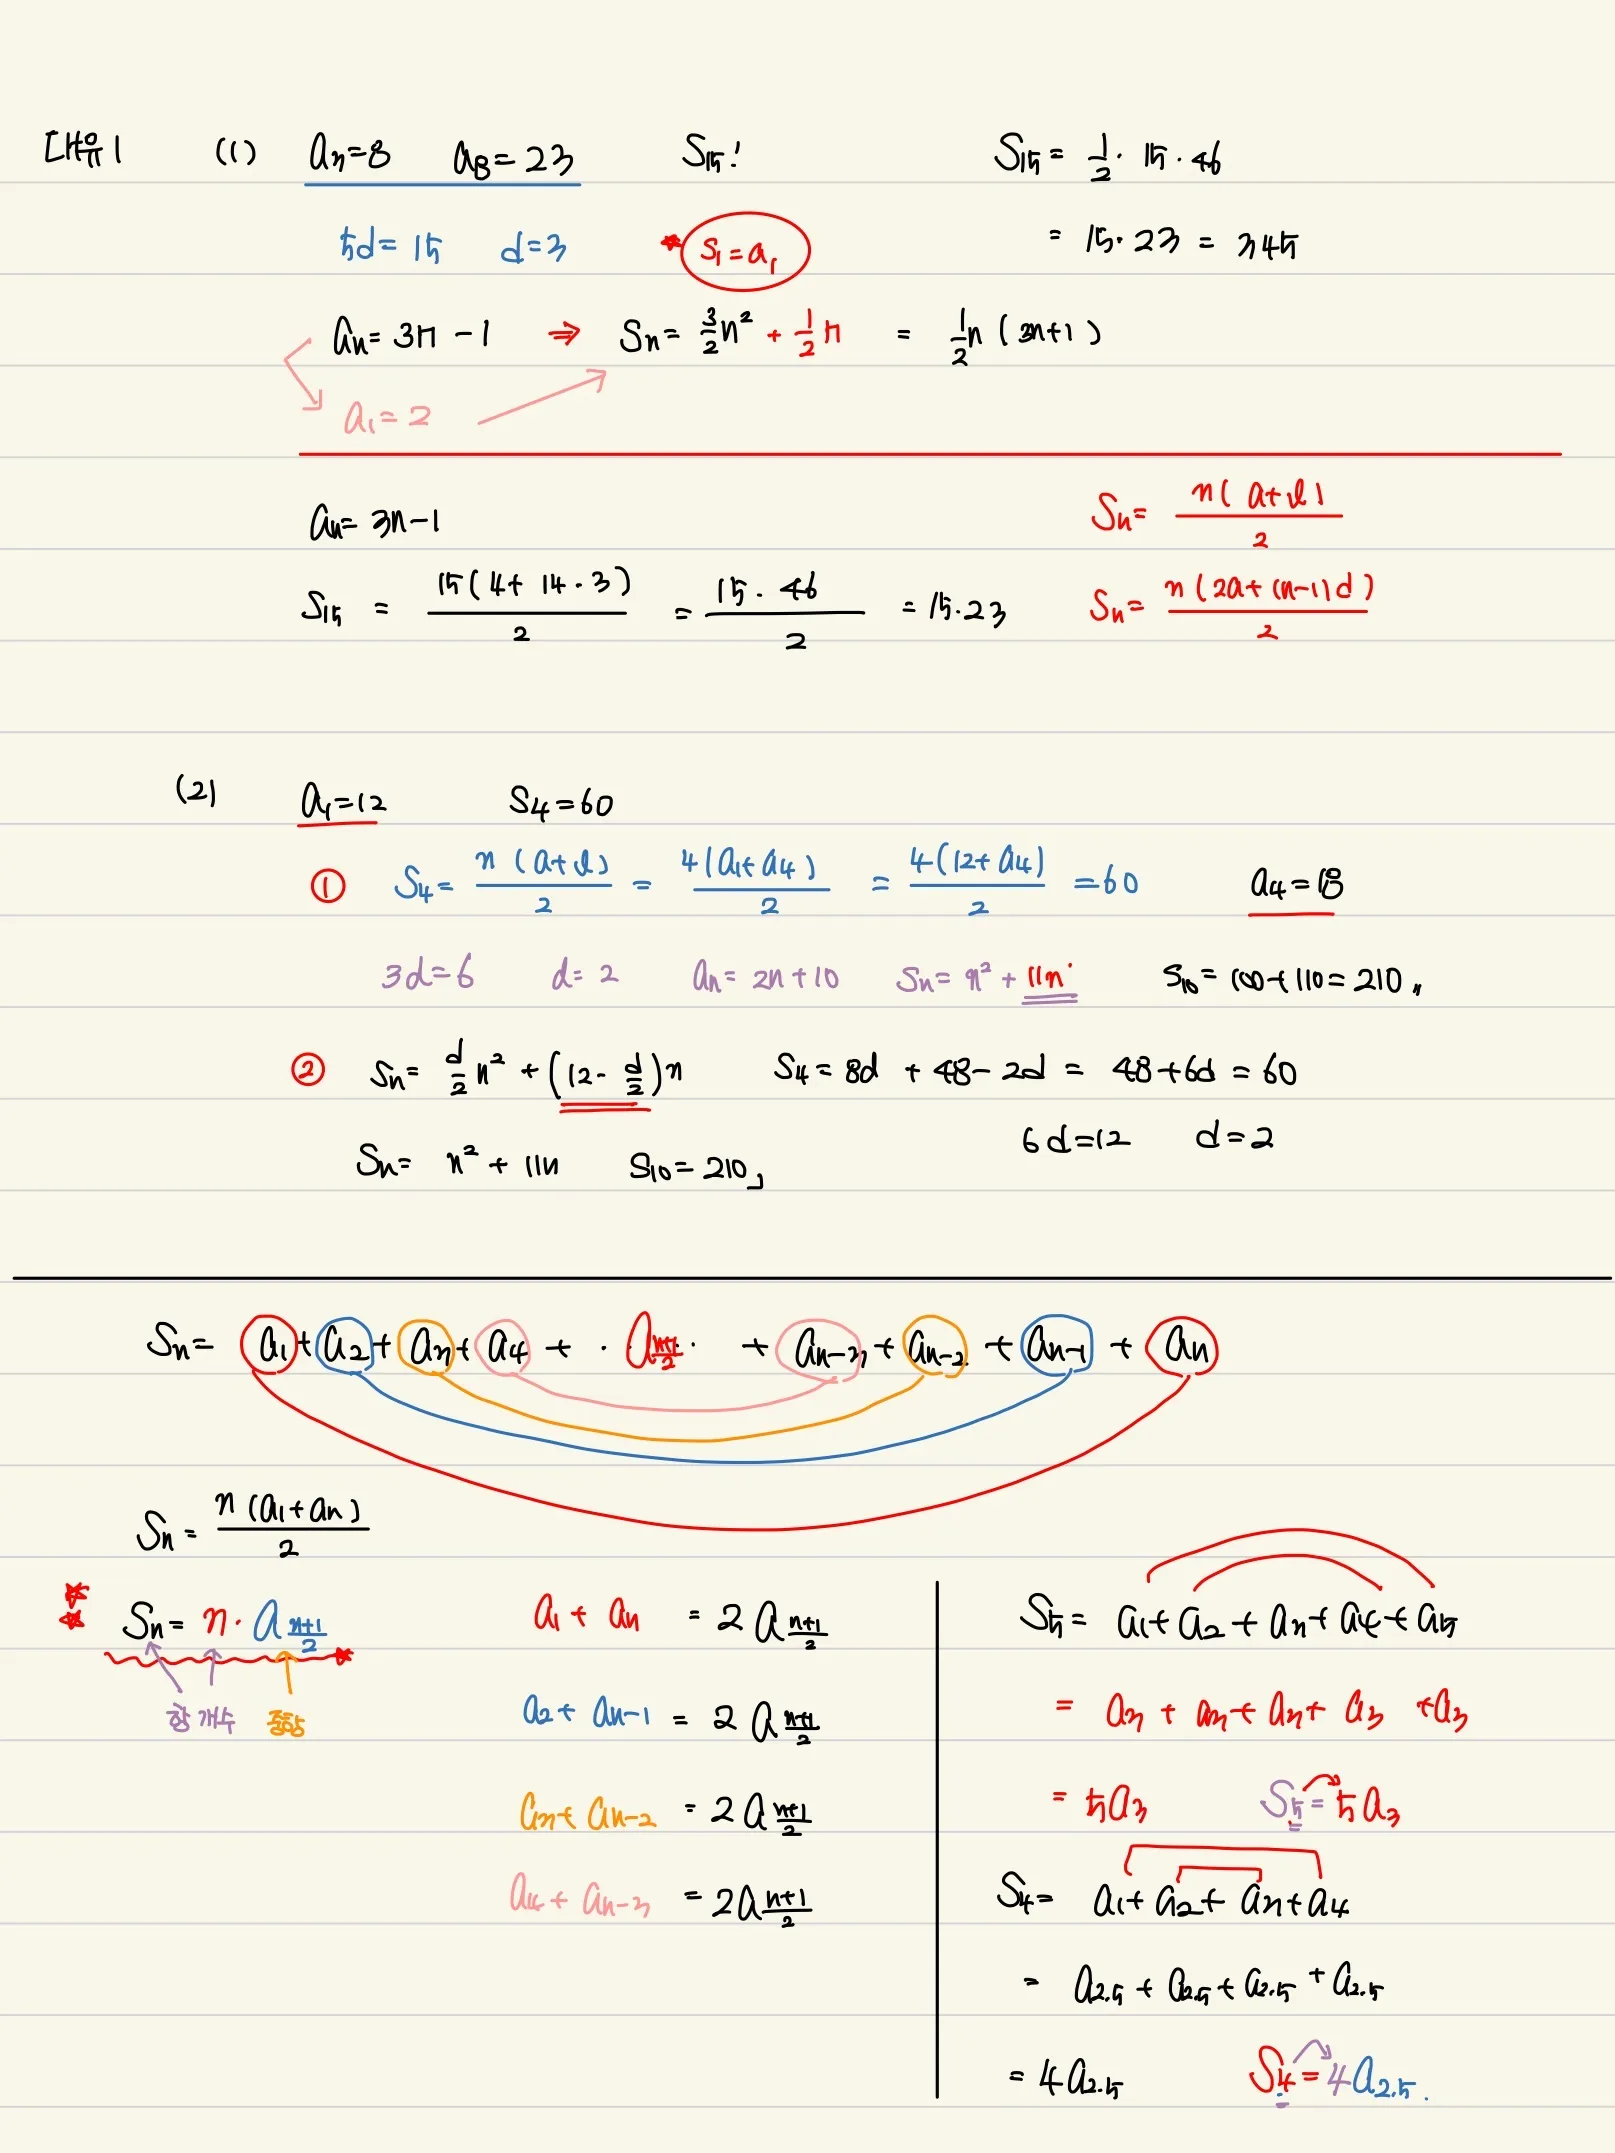 대유1 (1) a₃=8 a₈=23 S₁₅! S₁₅= 1/2 · 15 · 46
5d=15 d=3 * S₁=a₁ = 15·23 = 345
aₙ= 3n-1 ⇒ Sₙ= 3/2 n² + 1/2 n = 1/2 n (3n+1)
a₁=2
aₙ= 3n-1 Sₙ= n(a+l)/2
S₁₅ = 15(4+14·3)/2 = 15·46/2 = 15·23 Sₙ= n(2a+(n-1)d)/2
(2) a₁=12 S₄=60
① S₄= n(a+l)/2 = 4(a₁+a₄)/2 = 4(12+a₄)/2 =60 a₄=18
3d=6 d=2 aₙ= 2n+10 Sₙ= n²+11n S₁₀= 100+110=210〃
② Sₙ= d/2 n² + (12- d/2)n S₄= 8d +48-2d = 48+6d = 60
6d=12 d=2
Sₙ= n²+11n S₁₀=210」
Sₙ= a₁+a₂+a₃+a₄ + · a_{(n+1)/2} · + aₙ₋₃+aₙ₋₂ + aₙ₋₁ + aₙ
Sₙ= n(a₁+aₙ)/2
** Sₙ= n· a_{(n+1)/2} *
항 개수 중항
a₁+ aₙ = 2a_{(n+1)/2}
a₂+ aₙ₋₁ = 2a_{(n+1)/2}
a₃+ aₙ₋₂ = 2a_{(n+1)/2}
a₄+ aₙ₋₃ = 2a_{(n+1)/2}
S₅= a₁+a₂+a₃+a₄+a₅
= a₃+a₃+a₃+a₃+a₃
= 5a₃ S₅=5a₃
S₄= a₁+a₂+a₃+a₄
= a₂.₅+a₂.₅+a₂.₅+a₂.₅
= 4a₂.₅ S₄=4a₂.₅.